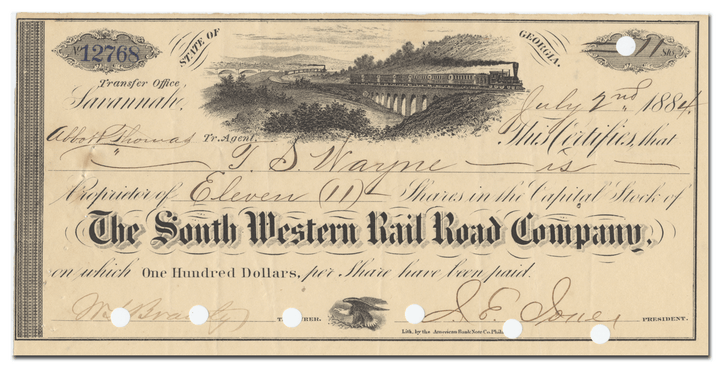 No 12768
STATE OF GEORGIA.
11 Shs
Transfer Office,
Savannah, July 2nd 1884
This Certifies, that
Tr. Agent.
T. S. Wayne is
Proprietor of Eleven (11) Shares in the Capital Stock of
The South Western Rail Road Company,
on which One Hundred Dollars, per Share have been paid.
J. E. Jones PRESIDENT.
Lith. by the American Bank Note Co. Phila